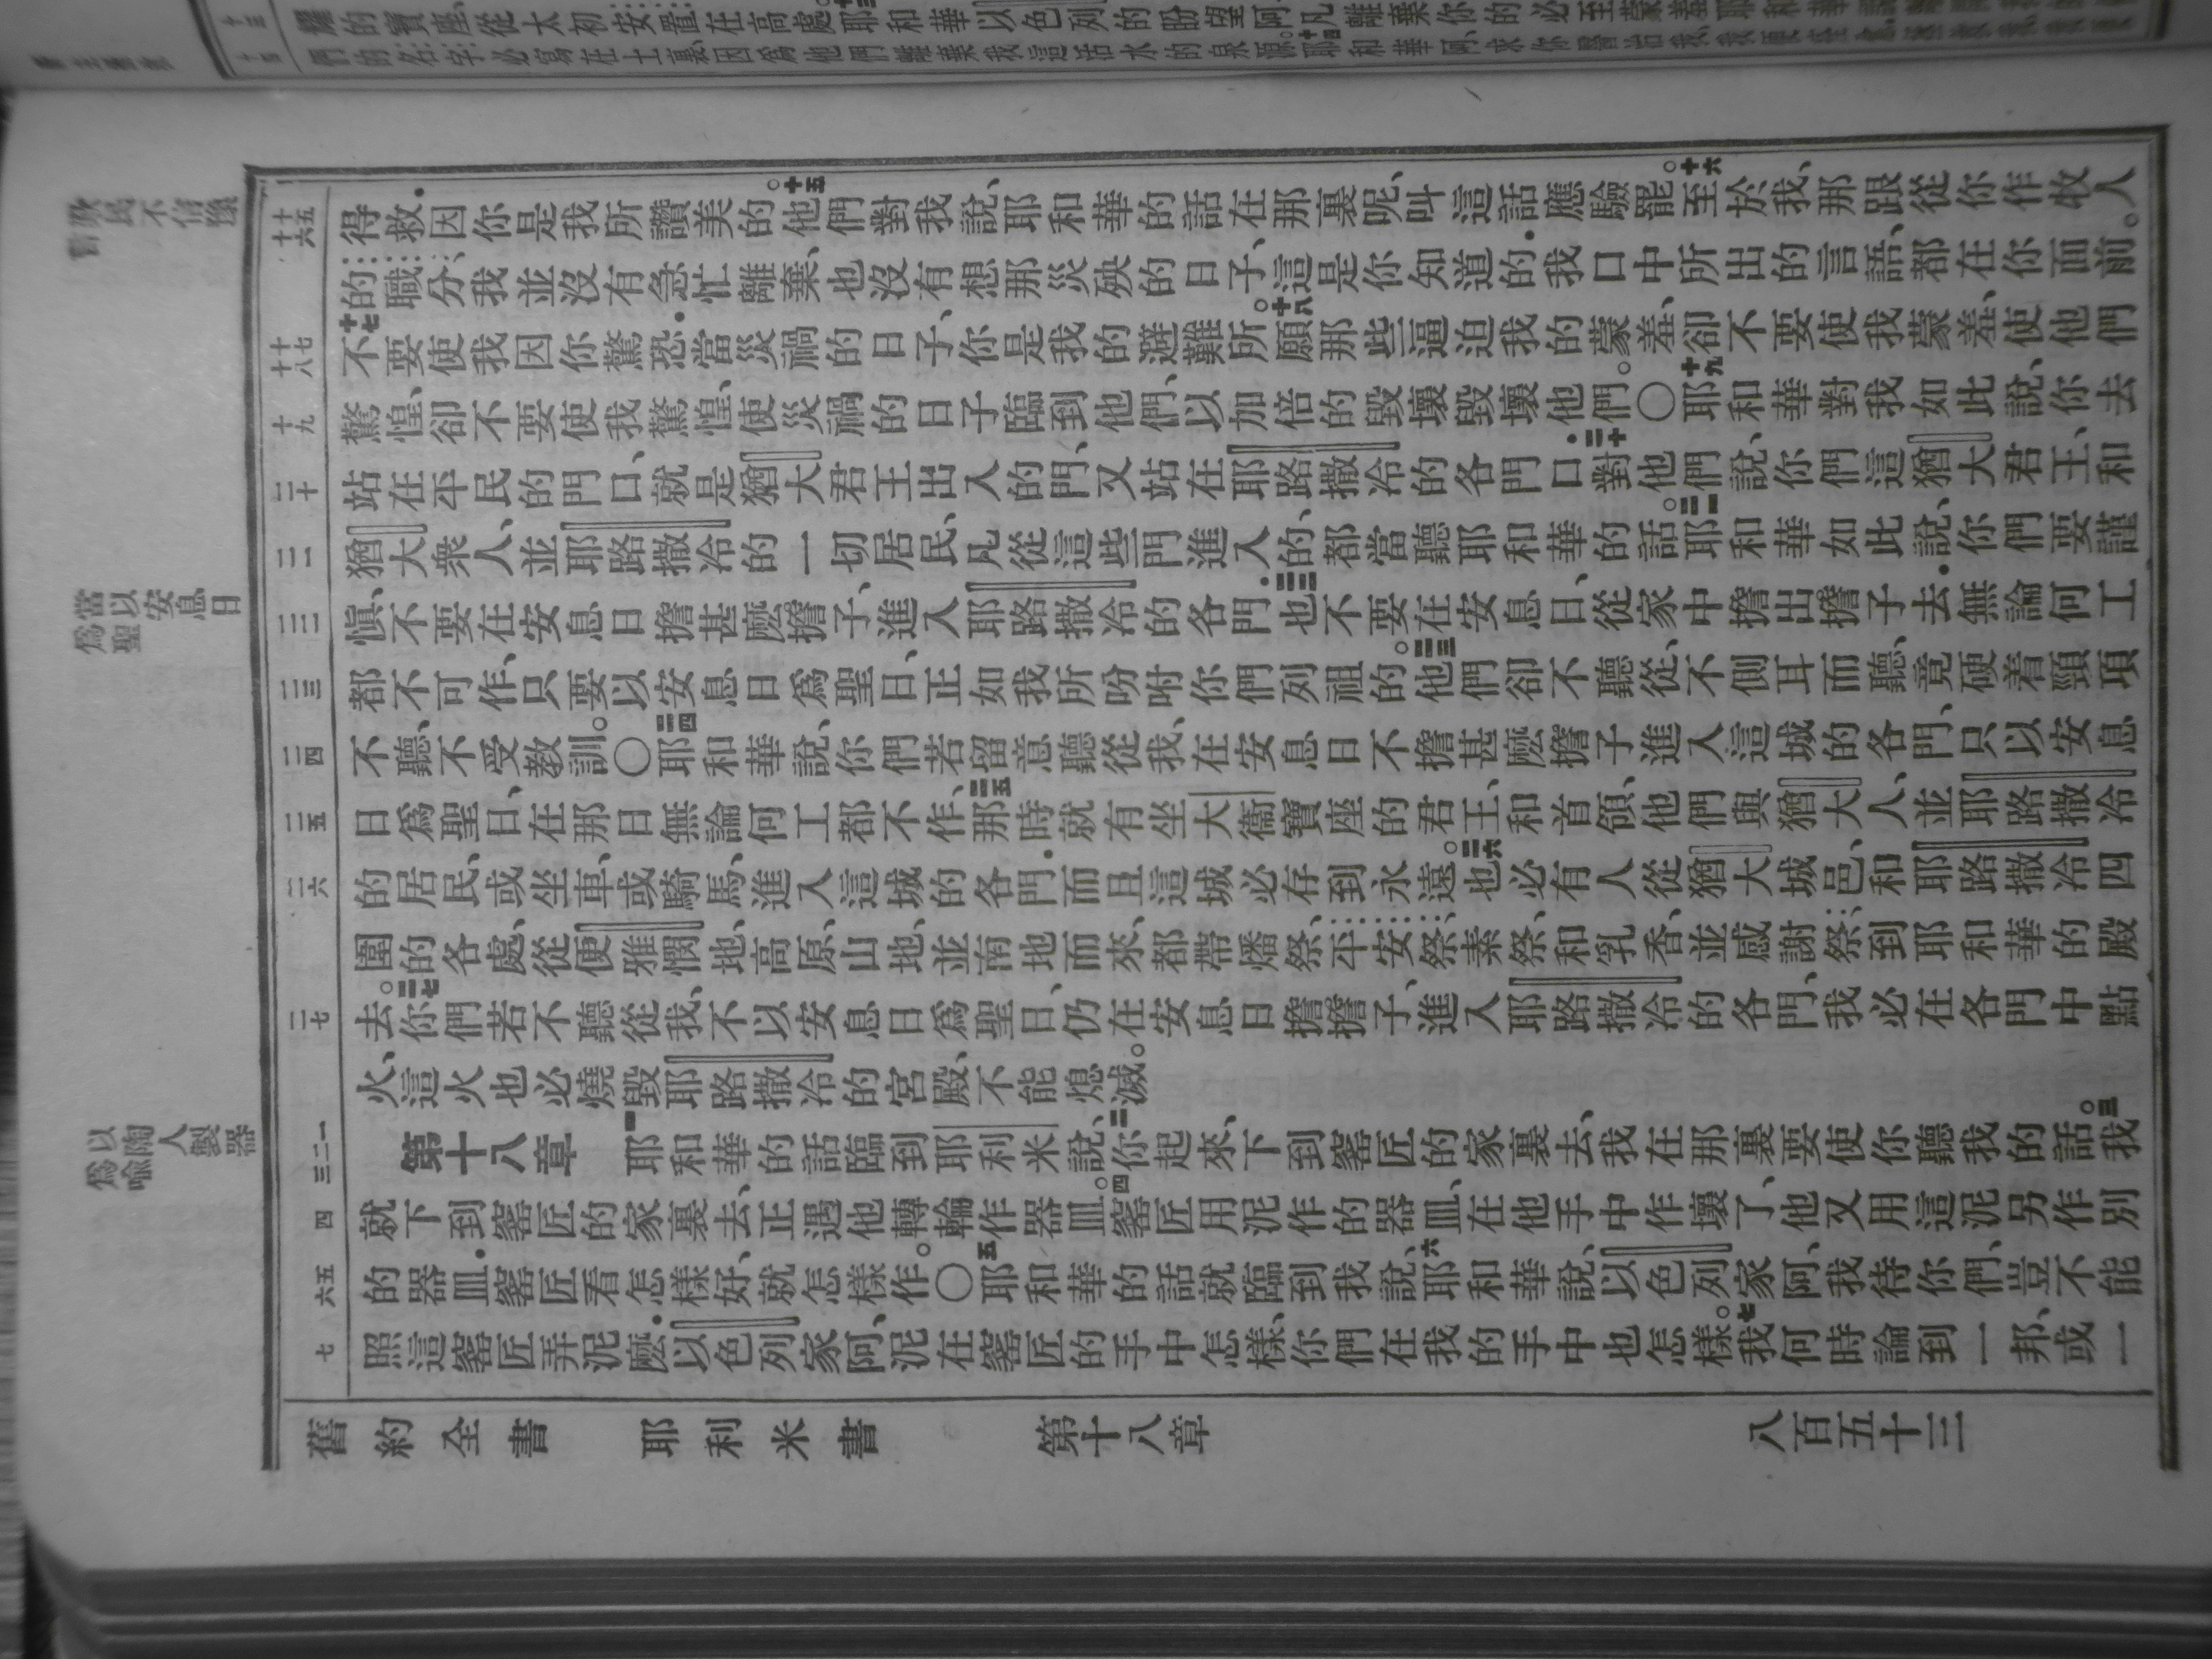 的寶座、從太初安置在高處。十三耶和華以色列的盼望阿、凡離棄你的必至蒙羞耶和華
們的名字必寫在土裏、因爲他們離棄我這活水的泉源。十四耶和華阿、求你醫治我、我便
十五
十六
得救.因你是我所讚美的。十五他們對我說、耶和華的話在那裏呢、叫這話應驗罷。十六至於我、那跟從你作牧人
的職分、我並沒有急忙離棄、也沒有想那災殃的日子、這是你知道的.我口中所出的言語、都在你面前。
十七
十八
十七不要使我因你驚恐.當災禍的日子、你是我的避難所。十八願那些逼迫我的蒙羞、卻不要使我蒙羞、使他們
十九
驚惶、卻不要使我驚惶、使災禍的日子臨到他們、以加倍的毀壞毀壞他們。〇十九耶和華對我如此說、你去
二十
站在平民的門口、就是猶大君王出入的門、又站在耶路撒冷的各門口.二十對他們說、你們這猶大君王、和
二一
猶大衆人、並耶路撒冷的一切居民、凡從這些門進入的、都當聽耶和華的話。二一耶和華如此說、你們要謹
當以安息日
爲聖
二二
愼、不要在安息日擔甚麼擔子、進入耶路撒冷的各門.二二也不要在安息日、從家中擔出擔子去.無論何工
二三
都不可作、只要以安息日爲聖日、正如我所吩咐你們列祖的。二三他們卻不聽從、不側耳而聽、竟硬着頸項
二四
不聽、不受教訓。〇二四耶和華說、你們若留意聽從我、在安息日不擔甚麼擔子進入這城的各門、只以安息
二五
日爲聖日、在那日無論何工都不作、二五那時就有坐大衞寶座的君王、和首領、他們與猶大人、並耶路撒冷
二六
的居民、或坐車、或騎馬、進入這城的各門.而且這城必存到永遠。二六也必有人從猶大城邑、和耶路撒冷四
圍的各處、從便雅憫地、高原、山地、並南地而來、都帶燔祭、平安祭、素祭、和乳香、並感謝祭、到耶和華的殿
二七
去。二七你們若不聽從我、不以安息日爲聖日、仍在安息日擔擔子、進入耶路撒冷的各門、我必在各門中點
火、這火也必燒毀耶路撒冷的宮殿、不能熄滅。
以陶人製器
爲喻
一
二
三
第十八章　一耶和華的話臨到耶利米說、二你起來、下到窰匠的家裏去、我在那裏要使你聽我的話。三我
四
就下到窰匠的家裏去、正遇他轉輪作器皿。四窰匠用泥作的器皿、在他手中作壞了、他又用這泥另作別
五
六
的器皿.窰匠看怎樣好、就怎樣作。〇五耶和華的話就臨到我說、六耶和華說、以色列家阿、我待你們、豈不能
七
照這窰匠弄泥麼.以色列家阿、泥在窰匠的手中怎樣、你們在我的手中也怎樣。七我何時論到一邦、或一
舊約全書　耶利米書　第十八章　八百五十三